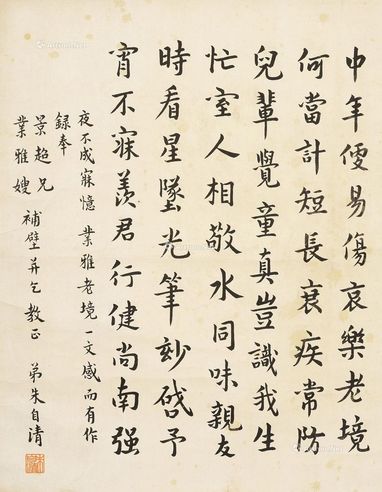 中年便易傷哀樂老境
何當計短長衰疾常防
兒輩覺童真豈識我生
忙室人相敬水同味親友
時看星墜光筆玅啓予
宵不寐羨君行健尚南强
夜不成寐憶 業雅老境一文感而有作
録奉
景超兄
業雅嫂 補壁并乞 教正 弟朱自清